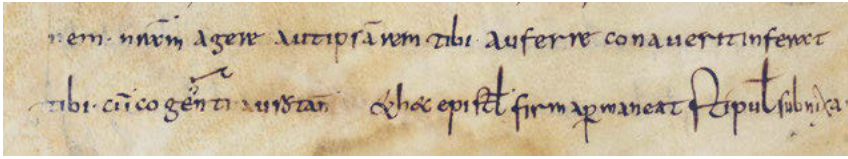 nem · agere aut ipsā rem tibi · auferre conaverit inferat
tibi · cū cogenti Et hoc epistl firma permaneat stipul subnixa